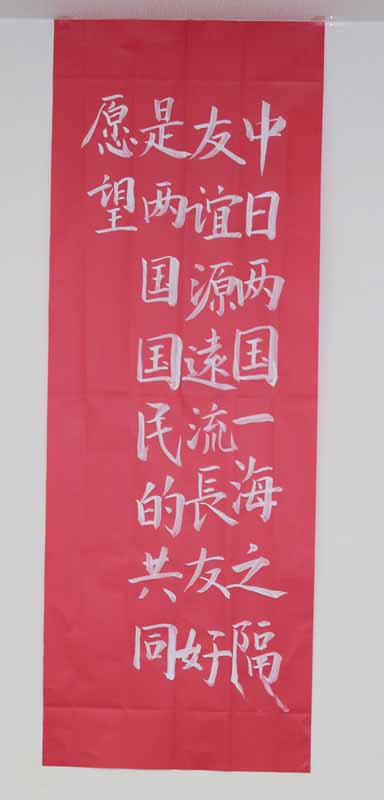 中日两国一海之隔
友谊源遠流長友好
是两国国民的共同
愿望